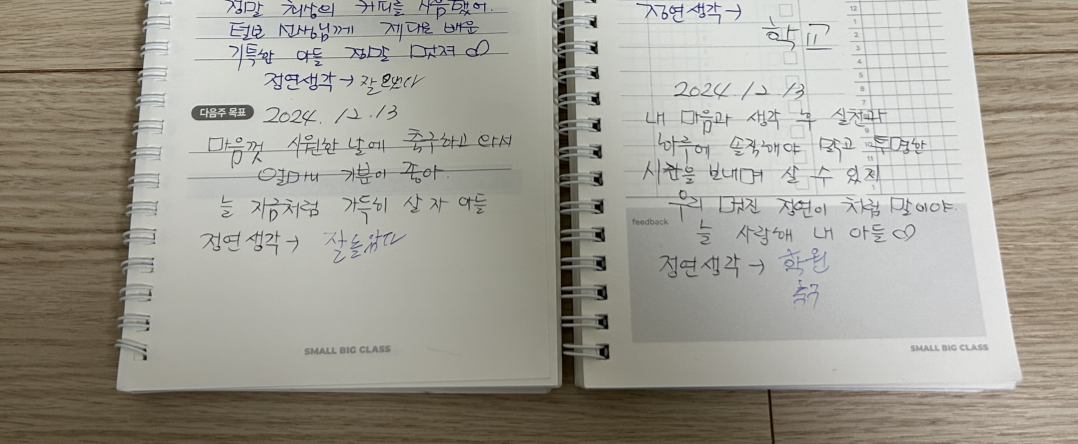 정말 최상의 커피를 사용했어.
털보 선생님께 제대로 배운
기특한 아들 정말 멋져
정연생각 → 잘
다음주 목표
2024. 12. 13
마음껏 시원한 날에 축구하고 와서
얼마나 기분이 좋아.
늘 지금처럼 가득히 살자 아들
정연생각 → 잘놀았다
SMALL BIG CLASS
정연생각 →
학교
2024. 12. 13
내 마음과 생각 후 실천과
하루에 솔직해야 맑고 투명한
시간을 보내며 살 수 있지
우리 멋진 정연이 처럼 말이야.
feedback
늘 사랑해 내 아들
정연생각 → 학원
축구
SMALL BIG CLASS